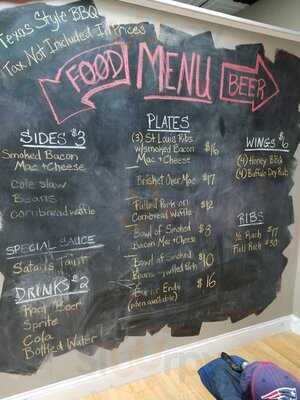 Texas Style BBQ
Tax Not Included In Prices
FOOD MENU BEER
SIDES $3
Smoked Bacon
Mac + Cheese
Cole slaw
Beans
cornbread waffle
SPECIAL SAUCE
DRINKS $2
Root Beer
Sprite
Cola
Bottled Water
PLATES
(3) St Louis Ribs
w/smoked Bacon $16
Mac + Cheese
Brisket Over Mac $17
Pulled Pork on $12
Cornbread Waffle
Bowl of Smoked $8
Bacon Mac + Cheese
Bowl of Smoked $10
Beans + Pulled Pork
Burnt Ends $16
(when available)
WINGS $6
(4) Honey BBQ
(4) Buffalo Dry Rub
RIBS
½ Rack $17
Full Rack $30